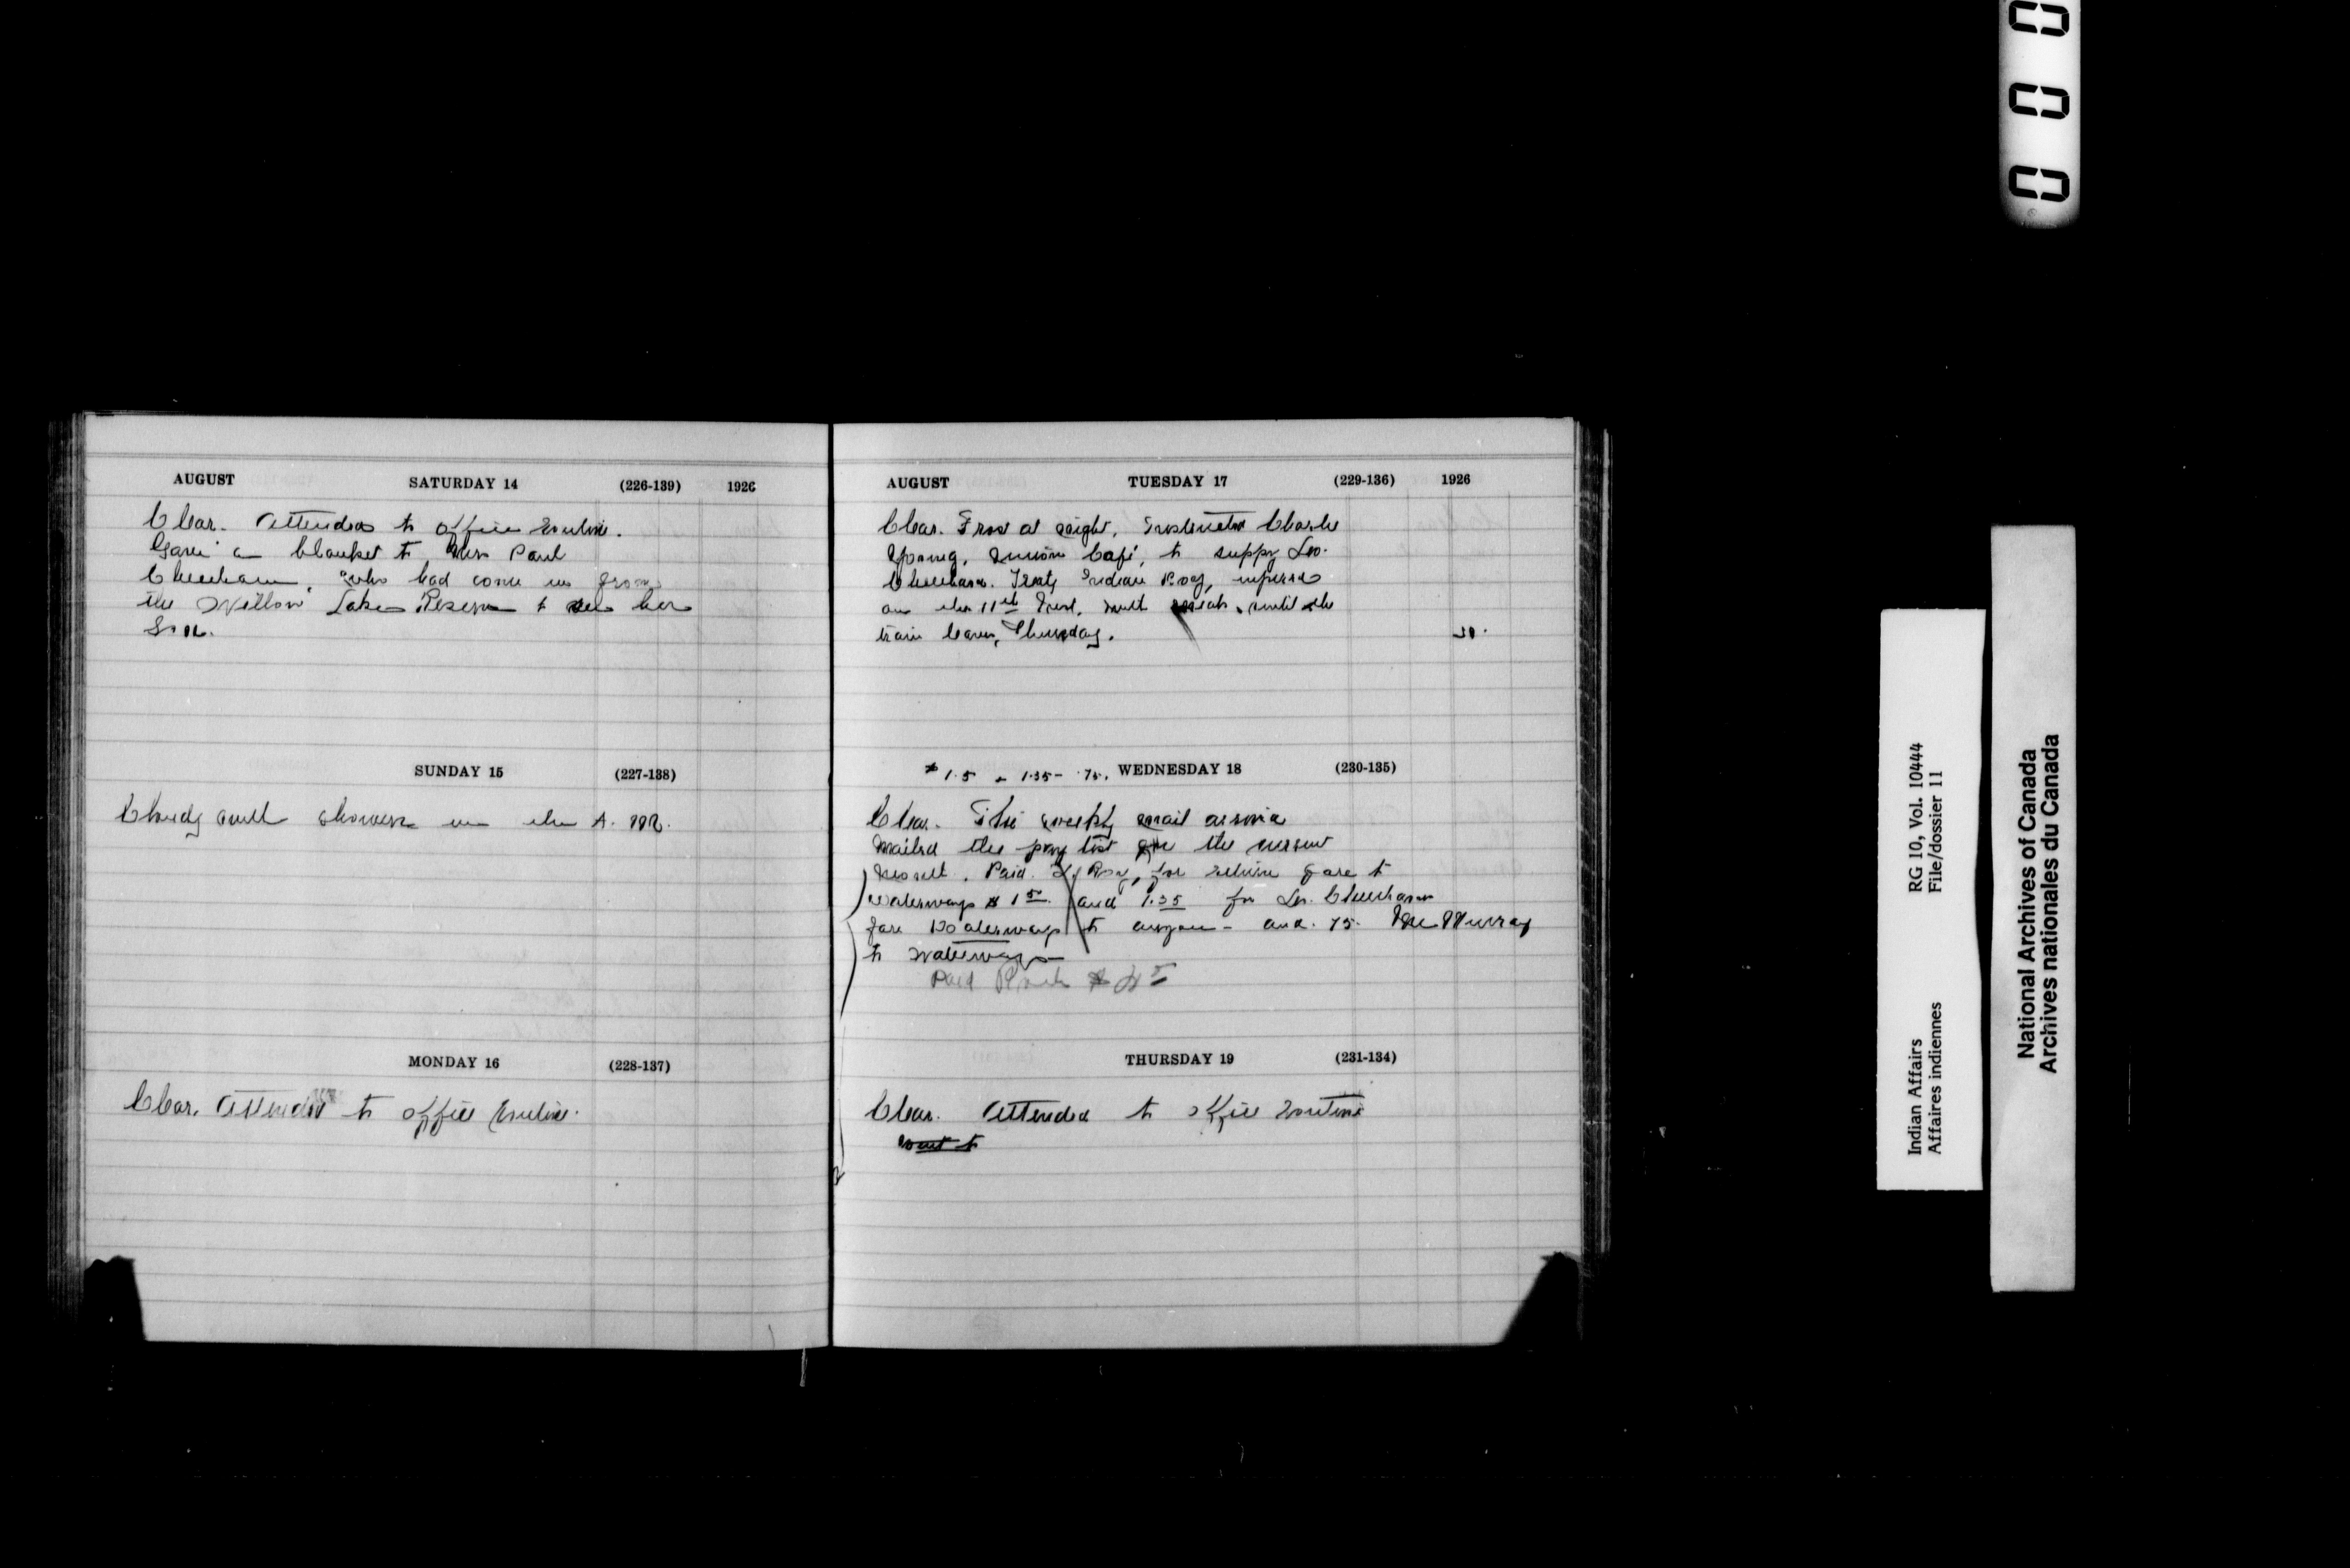 AUGUST SATURDAY 14 (226-139) 1926
Clear. Attended to office routine.
Gave a blanket to Mrs Paul
Cheecham, who had come in from
the Willow Lake Reserve to see her
son.
SUNDAY 15 (227-138)
Cloudy with showers in the A.M.
MONDAY 16 (228-137)
Clear. Attended to office routine.
AUGUST TUESDAY 17 (229-136) 1926
Clear. Frost at night. Instructed Charlie
Young, Union Café, to supply Leo.
Cheecham. Treaty Indian Boy, injured
on the 11th Inst. with meals until the
train leaves, Thursday.
$1.5 - 1.35 - 75. WEDNESDAY 18 (230-135)
Clear. The weekly mail arrived
Mailed the pay list for the current
month. Paid Roy, for return fare to
Waterways $1 50. and 1.35 for Leo. Cheecham
fare Waterways to - and .75. McMurray
to Waterways
Paid
THURSDAY 19 (231-134)
Clear. Attended to office routine
went to
Indian Affairs RG 10, Vol. 10444
Affaires indiennes File/dossier 11
National Archives of Canada
Archives nationales du Canada
0 0 0